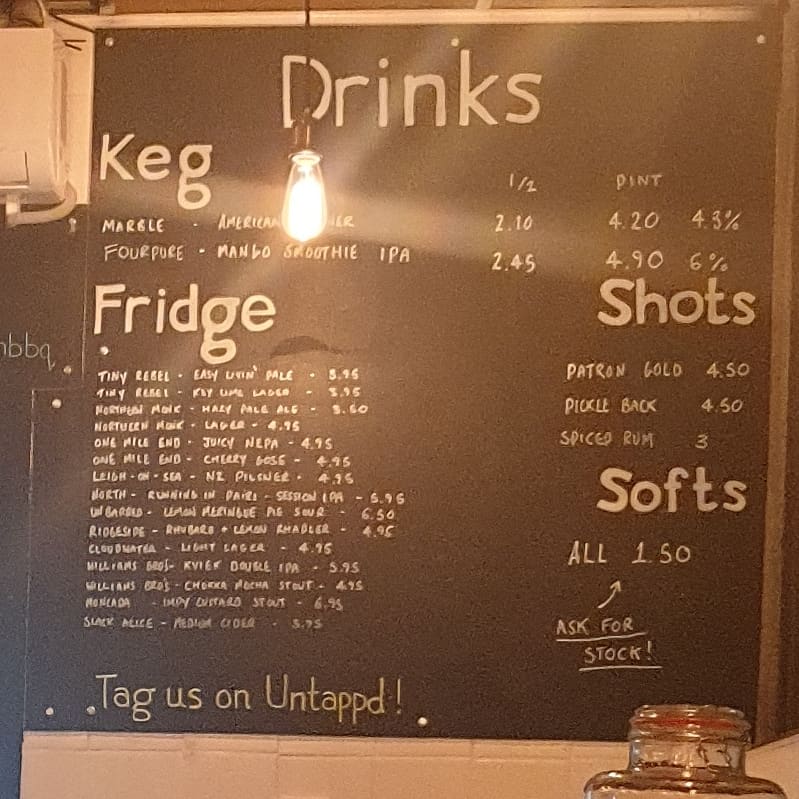 Drinks
Keg
1/2 PINT
MARBLE - AMERICAN 2.10 4.20 4.3%
FOURPURE - MANGO SMOOTHIE IPA 2.45 4.90 6%
Fridge
TINY REBEL - EASY LIVIN' PALE - 3.95
TINY REBEL - KEY LIME LAGER - 3.95
NORTHERN MONK - HAZY PALE ALE -
NORTHERN MONK - LAGER - 4.95
ONE MILE END - JUICY NEPA - 4.95
ONE MILE END - CHERRY GOSE - 4.95
LEIGH-ON-SEA - NZ PILSNER - 4.95
NORTH - RUNNING IN - SESSION IPA - 5.95
UNBARRED - LEMON MERINGUE PIE SOUR - 6.50
RIDGESIDE - RHUBARB + LEMON SHADLER - 4.95
CLOUDWATER - LIGHT LAGER - 4.95
WILLIAMS BRO'S - KVIEK DOUBLE IPA - 5.95
WILLIAMS BRO'S - CHOKKA MOCHA STOUT - 4.95
MONCADA - IMPY CUSTARD STOUT - 6.95
SLACK ALICE - MEDIUM CIDER -
Tag us on Untappd!
Shots
PATRON GOLD 4.50
PICKLE BACK 4.50
SPICED RUM 3
Softs
ALL 1.50
ASK FOR
STOCK!
nbbq